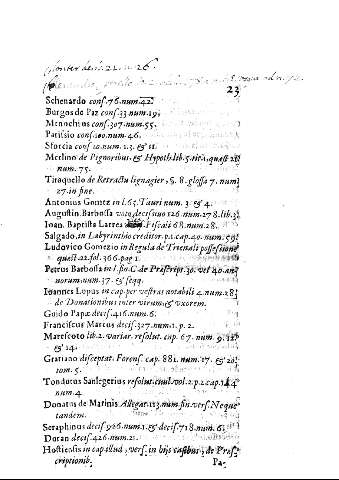 23
Schenardo conf. 76. num. 42.
Burgos de Paz conf. 33. num. 19.
Menochius conf. 307. num. 55.
Parisio conf. 100. num. 46.
Sforcia conf. 10. num. 1.3. & 11.
Merlino de Pignoribus, & Hypoth. lib. 5. tit. 1. quest. 28
num. 75.
Tiraquello de Retractu lignagier, §. 8. glossa 7. num.
27. in fine.
Antonius Gomez in l. 65. Tauri num. 3. & 4.
Augustin. Barbossa voto decisiuo 126. num. 278. lib. 3.
Ioan. Baptista Larrea Fiscali 68. num. 28.
Salgado, in Labyrintho creditor. p. 1. cap. 40. num. 59.
Ludouico Gomezio in Regula de Trienali possessione
quest. 22. fol. 366. pag. 1.
Petrus Barbossa in l. fin. C. de Præscript. 30. vel 40. an-
norum. num. 37. & seqq.
Ioannes Lupus in cap. per vestras notabili 2. num. 28.
de Donationibus inter virum, & vxorem.
Guido Papæ decis. 416. num. 6.
Franciscus Marcus decis. 327. num. 1. p. 2.
Marescoto lib. 2. variar. resolut. cap. 67. num. 9. 12.
& 14.
Gratiano disceptat. Forens. cap. 881. num. 17. & 20.
tom. 5.
Tondutus Sanlegerius resolut. ciuil. vol. 2. p. 2. cap. 144
num. 4.
Donatus de Marinis Allegat. 123. num. fin. vers. Neque
tandem.
Seraphinus decis. 926. num. 1. & decis. 718. num. 6.
Duran decis. 426. num. 21.
Hostiensis in cap. illud, vers. in hijs casibus, de Præs-
criptionib.
Pa-